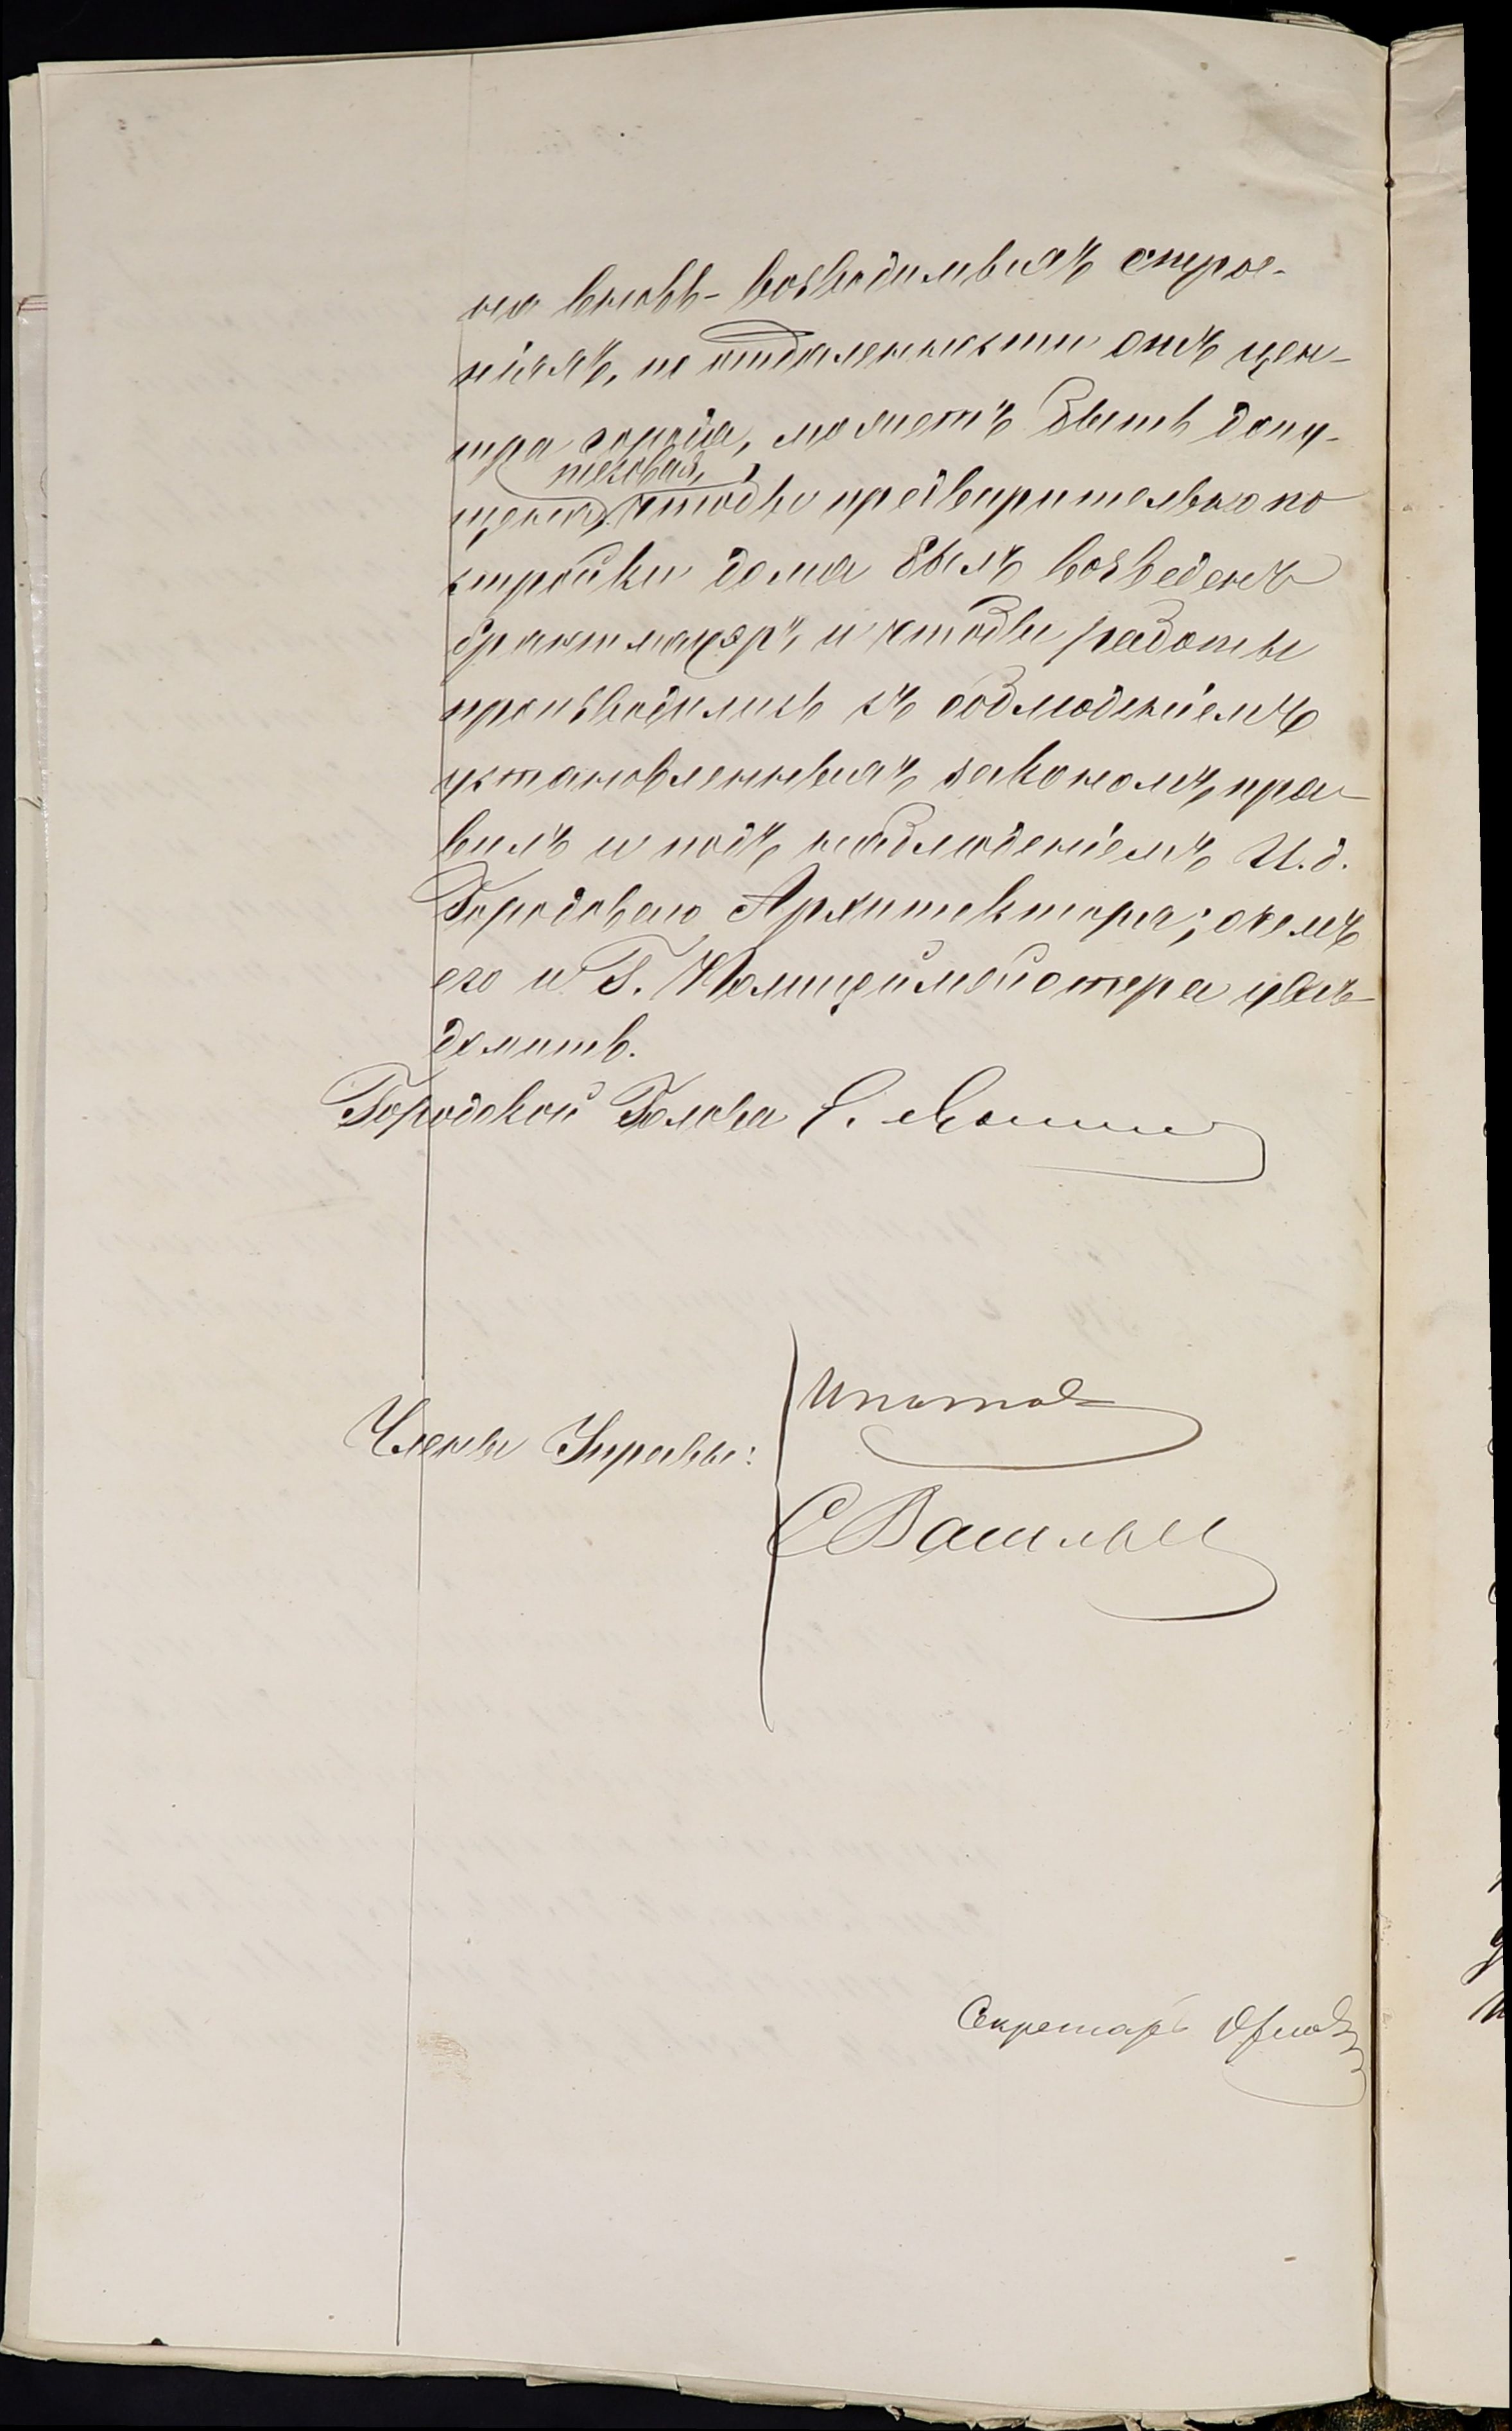 на вновь-возводимыхъ строе-
ніяхъ, по отдаленности онѣхъ цен-
тра города, можетъ быть допу-
тесовая,
щена, чтобы предварительно по
стройки дома былъ возведенъ
брантмауэръ и чтобы работы
производились съ соблюденіемъ
установленныхъ закономъ пра-
вилъ и подъ наблюденіемъ И. д.
Городоваго Архитектора; о чемъ
его и Г. Полиціймейстера увѣ-
домить.
Городской Голова
Члены Управы:
Ипатов
С Васильев
Секретарь Орлов